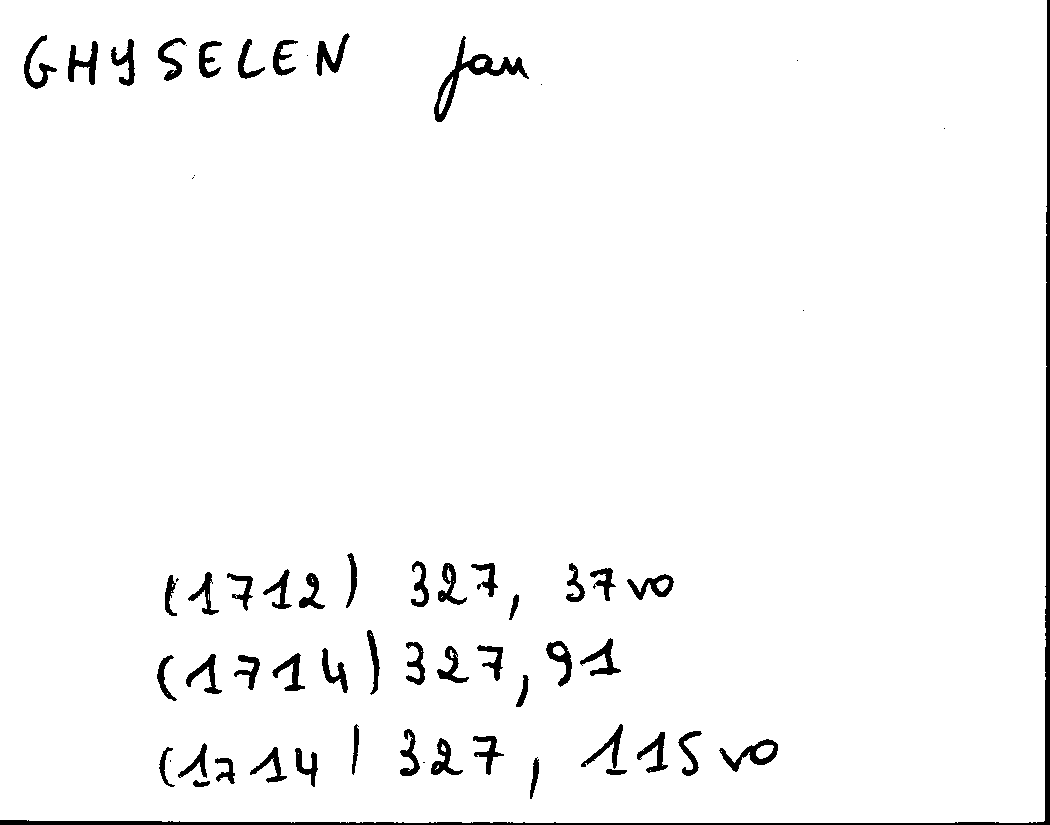 GHYSELEN Jan
(1712) 327, 37vo
(1714) 327, 91
(1714) 327, 115vo